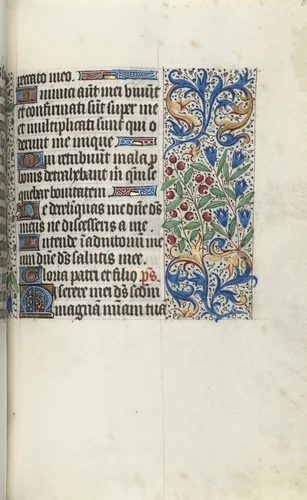 peccato meo.
Inimici aūt mei viuūt
et confirmati sūt super me
et multiplicati sunt qui o
derunt me inique.
Qui retribuūt mala p
bonis detrahebant m̄ qm̄ se
quebar bonitatem.
Ne derelīquas me dn̄e ds̄
meus ne discesseris a me.
Intende ī adiutoriū me
um dn̄e ds̄ salutis mee.
Gloria patri et filio ps.
Miserere mei ds̄ scdm̄
magnā m̄iam tuā